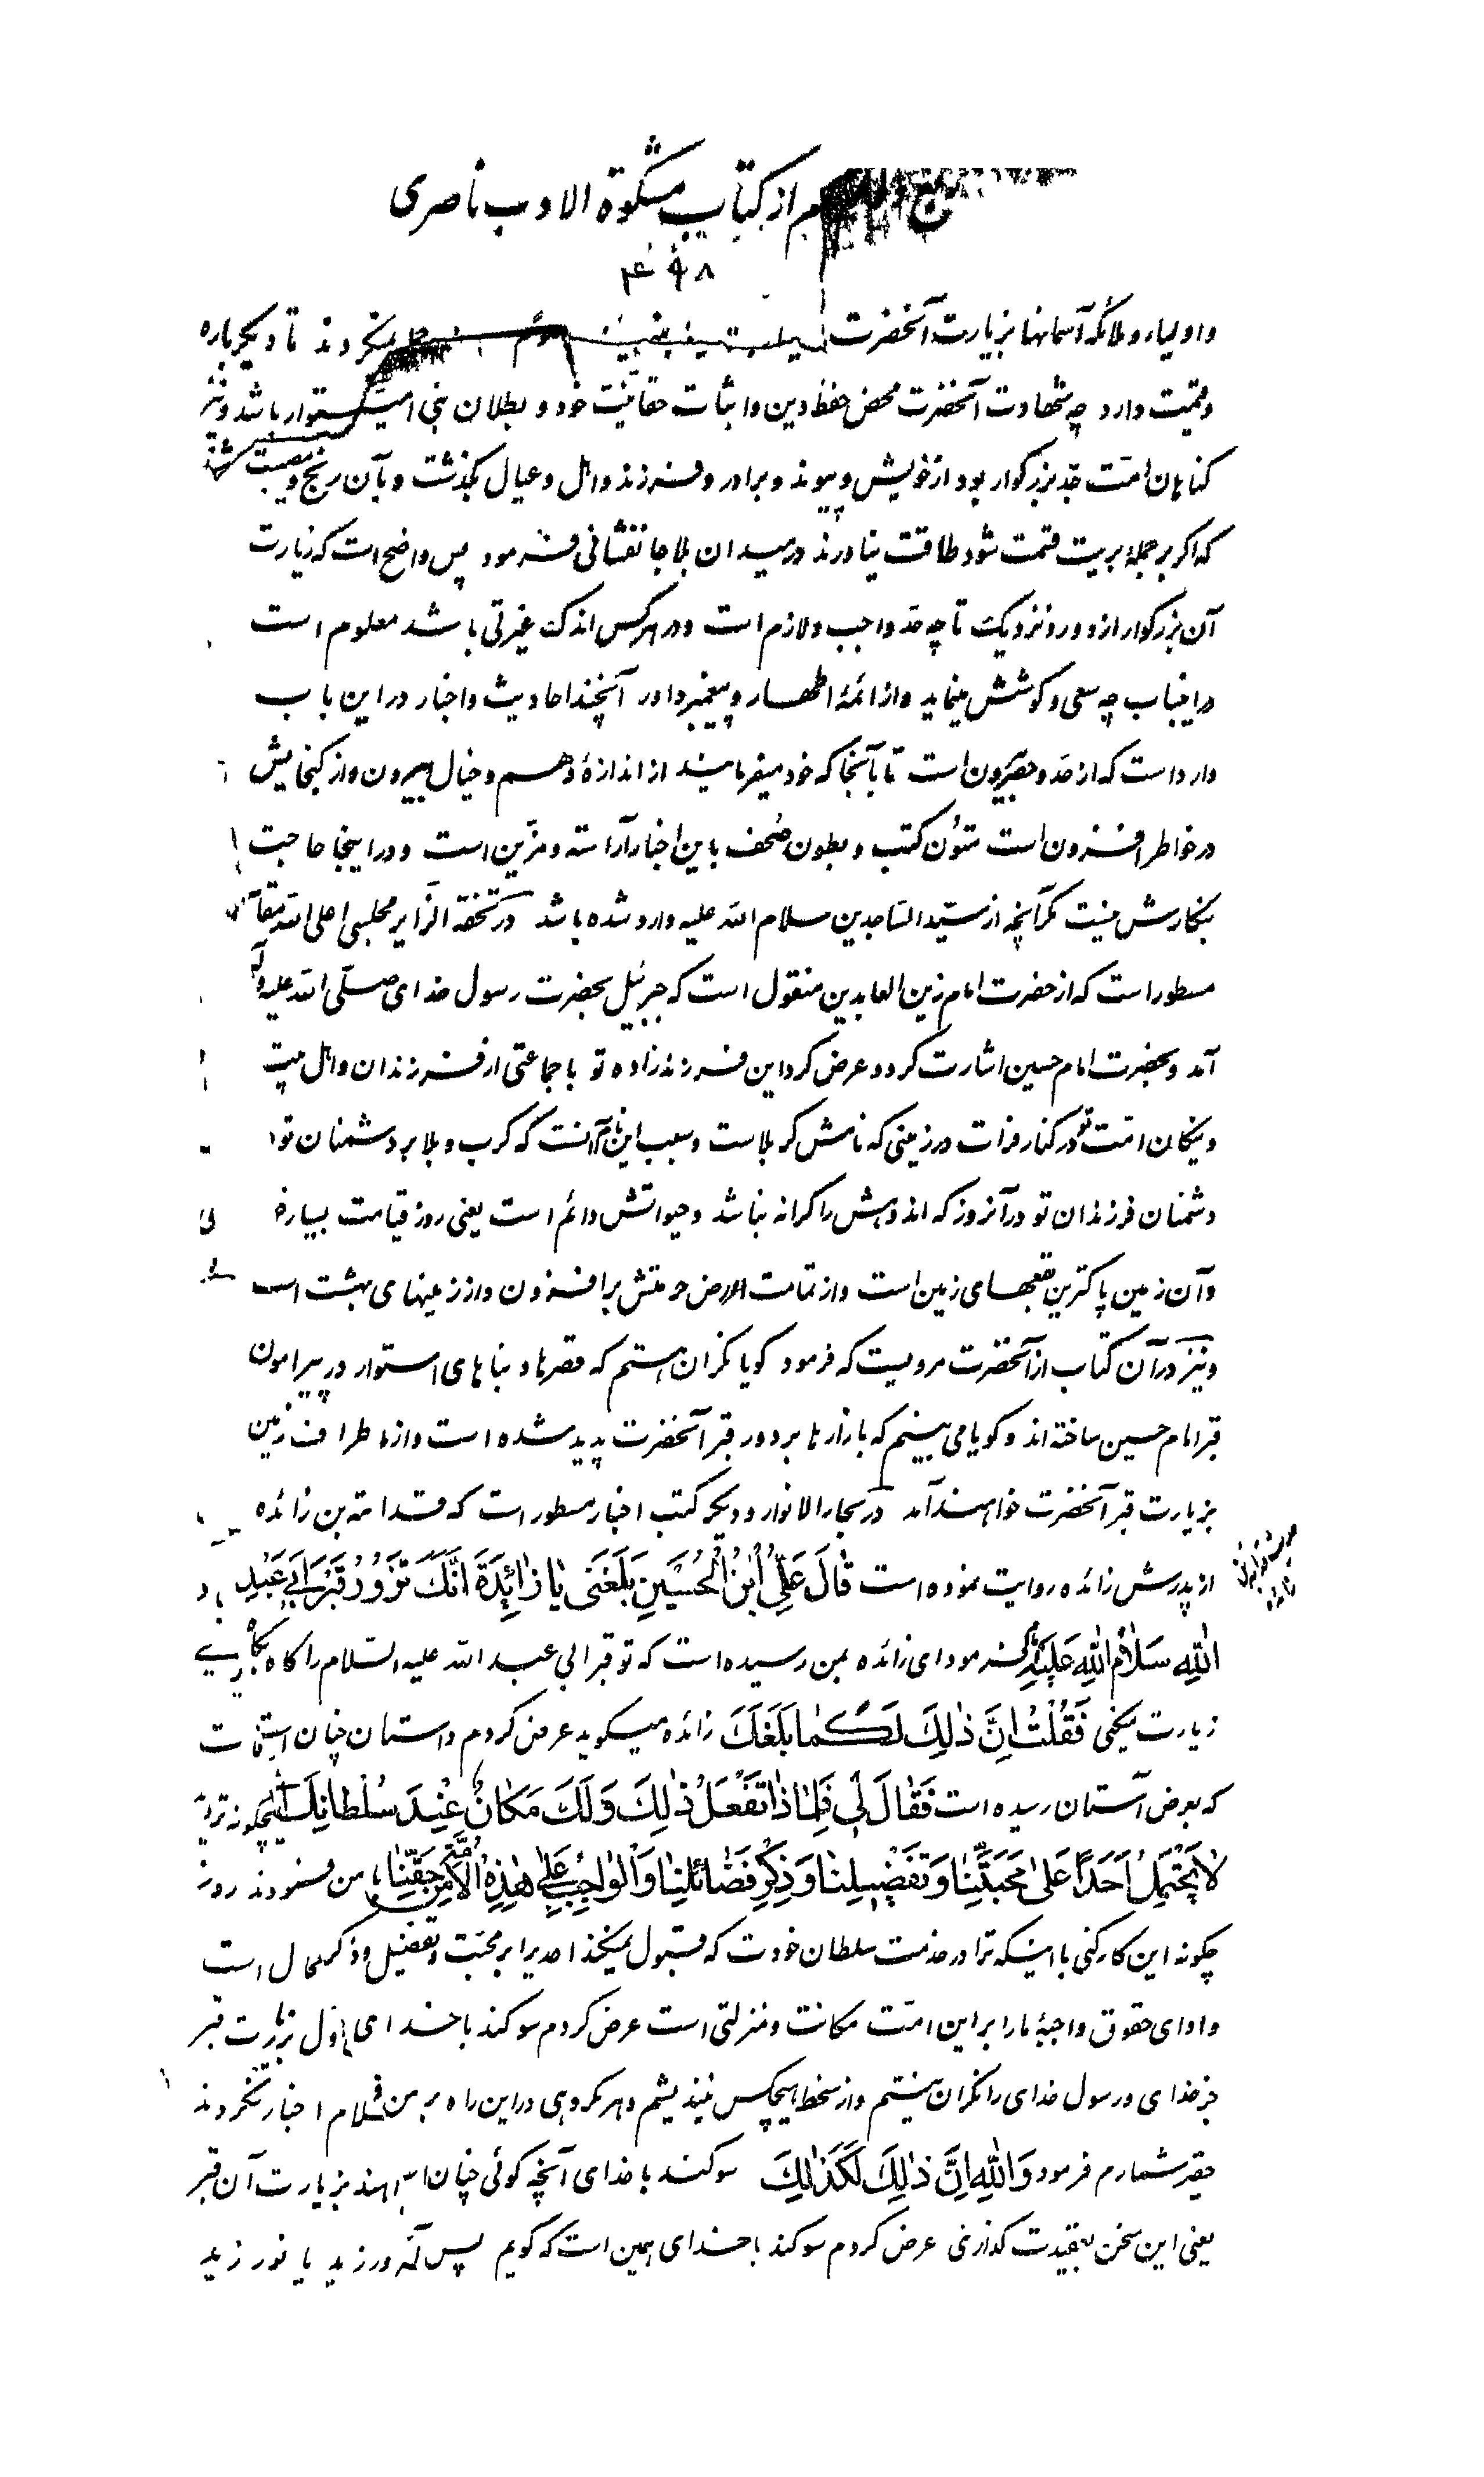 ربع از کتاب مشکوة الادب ناصری
۴۹۸
و اولیاء و ملائکه آسمانها بزیارت آنحضرت نکردند تا دیگرباره
و قیمت دارد چه شهادت آنحضرت محض حفظ دین و اثبات حقانیّت خود و بطلان بنی امیّه استوار باشد و نیز
کناهان امّت جدّ بزرکوار بود از خویش و پیوند و برادر و فرزند و اهل و عیال بگذشت و بآن رنج و مصیبت
که اکر بر جملهٔ بریت قسمت شود طاقت نیاورند در میدان بلا جانفشانی فرمود پس واضح است که زیارت
آن بزرکوار از دور و نزدیک تا چه حدّ واجب و لازم است و در هر کس اندک غیرتی باشد معلوم است
در اینباب چه سعی و کوشش مینماید و از ائمّهٔ اطهار و پیغمبر داور آنچند احادیث و اخبار در این باب
وارد است که از حدّ و حصر بیرون است تا بآنجا که خود میفرمایند از اندازهٔ وهم و خیال بیرون و از کنجایش
در خواطر افزون است متون کتب و بطون صحف باین اخبار آراسته و مزیّن است و در اینجا حاجت
بنکارش نیست مکر آنچه از سیّد السّاجدین سلام الله علیه وارد شده باشد در تحفة الزّایر مجلسی اعلی الله مقامه
مسطور است که از حضرت امام زین العابدین منقول است که جبرئیل بحضرت رسول خدای صلّی الله علیه و آله
آمد و بحضرت امام حسین اشارت کرد و عرض کرد این فرزندزاده تو با جماعتی از فرزندان و اهل بیت
و نیکان امّت تو در کنار فرات در زمینی که نامش کربلاست و سبب این نام آنست که کرب و بلا بر دشمنان تو
دشمنان فرزندان تو در آنروز که اندوهش را کرانه نباشد و حسراتش دائم است یعنی روز قیامت بسیار
و آن زمین پاکترین بقعهای زمین است و از تمامت ارض حرمتش برافزون و از زمینهای بهشت است
و نیز در آن کتاب از آنحضرت مرویست که فرمود کویا نکران هستم که قصرها و بناهای استوار در پیرامون
قبر امام حسین ساخته‌اند و کویا می‌بینم که بازارها بر دور قبر آنحضرت پدید شده است و از اطراف زمین
بزیارت قبر آنحضرت خواهند آمد در بحار الانوار و دیگر کتب اخبار مسطور است که قدامة بن زائده
از پدرش زائده روایت نموده است قَالَ عَلِیُّ ابْنُ الْحُسَیْنِ بَلَغَنی یٰا زٰائِدَةَ اَنَّکَ تَزُورُ قَبْرَ اَبی عَبْدِ
اللهِ سَلٰامُ اللهِ عَلَیْهِ فرمود ای زائده بمن رسیده است که تو قبر ابی عبد الله علیه السّلام را کاه بکاه
زیارت میکنی فَقُلْتُ اِنَّ ذٰلِکَ لَکَمٰا بَلَغَکَ زائده میکوید عرض کردم داستان چنان است
که بعرض آستان رسیده است فَقٰالَ لی فَلِمٰا ذٰا تَفْعَلُ ذٰلِکَ وَ لَکَ مَکٰانٌ عِنْدَ سُلْطٰانِکَ الَّذی
لاٰ یَحْتَمِلُ اَحَدًا عَلیٰ مَحَبَّتِنٰا وَ تَفْضیلِنٰا وَ ذِکْرِ فَضٰائِلِنٰا وَ الْوٰاجِبِ عَلیٰ هٰذِهِ الْاُمَّةِ مِنْ حَقِّنٰا با من فرمودند
چکونه این کار کنی با اینکه ترا در خدمت سلطان خودت که قبول نمیکند احدیرا بر محبّت و تفضیل و ذکر است
و ادای حقوق واجبهٔ ما را بر این امّت مکانت و منزلتی است عرض کردم سوکند با خدای زیارت قبر
جز خدای و رسول خدای را نکران نیستم و از سخط هیچکس نیندیشم و هر مکروهی در این راه بر من
حقیر شمارم فرمود وَ اللهِ اِنَّ ذٰلِکَ لَکَذٰلِکَ سوکند با خدای آنچه کوئی چنان بزیارت آن قبر
یعنی این سخن بعقیدت کذرنی عرض کردم سوکند با خدای همین است که کویم پس